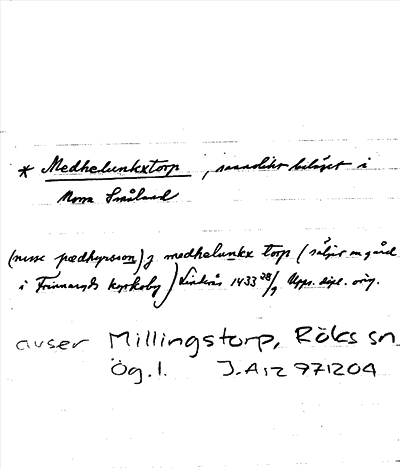 * Medhelunkxtorp, sannolikt beläget i
Norra Småland
(nisse pædhersson) j medhelunkx torp (säljer en gård
i Frinnaryds kyrkoby) Linkrås 1433 28/9 Upps. dipl. orig.
avser Millingstorp, Röks sn,
Ög. l. J.A 12 971204